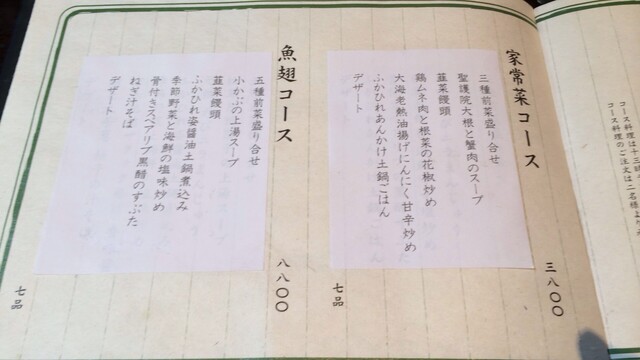 コース料理は十三時
コース料理のご注文は二名様より
家常菜コース
三八〇〇
三種前菜盛り合せ
聖護院大根と蟹肉のスープ
韮菜饅頭
鶏ムネ肉と根菜の花椒炒め
大海老熱油揚げにんにく甘辛炒め
ふかひれあんかけ土鍋ごはん
デザート
七品
魚翅コース
八八〇〇
五種前菜盛り合せ
小かぶの上湯スープ
韮菜饅頭
ふかひれ姿醤油土鍋煮込み
季節野菜と海鮮の塩味炒め
骨付きスペアリブ黒醋のすぶた
ねぎ汁そば
デザート
七品